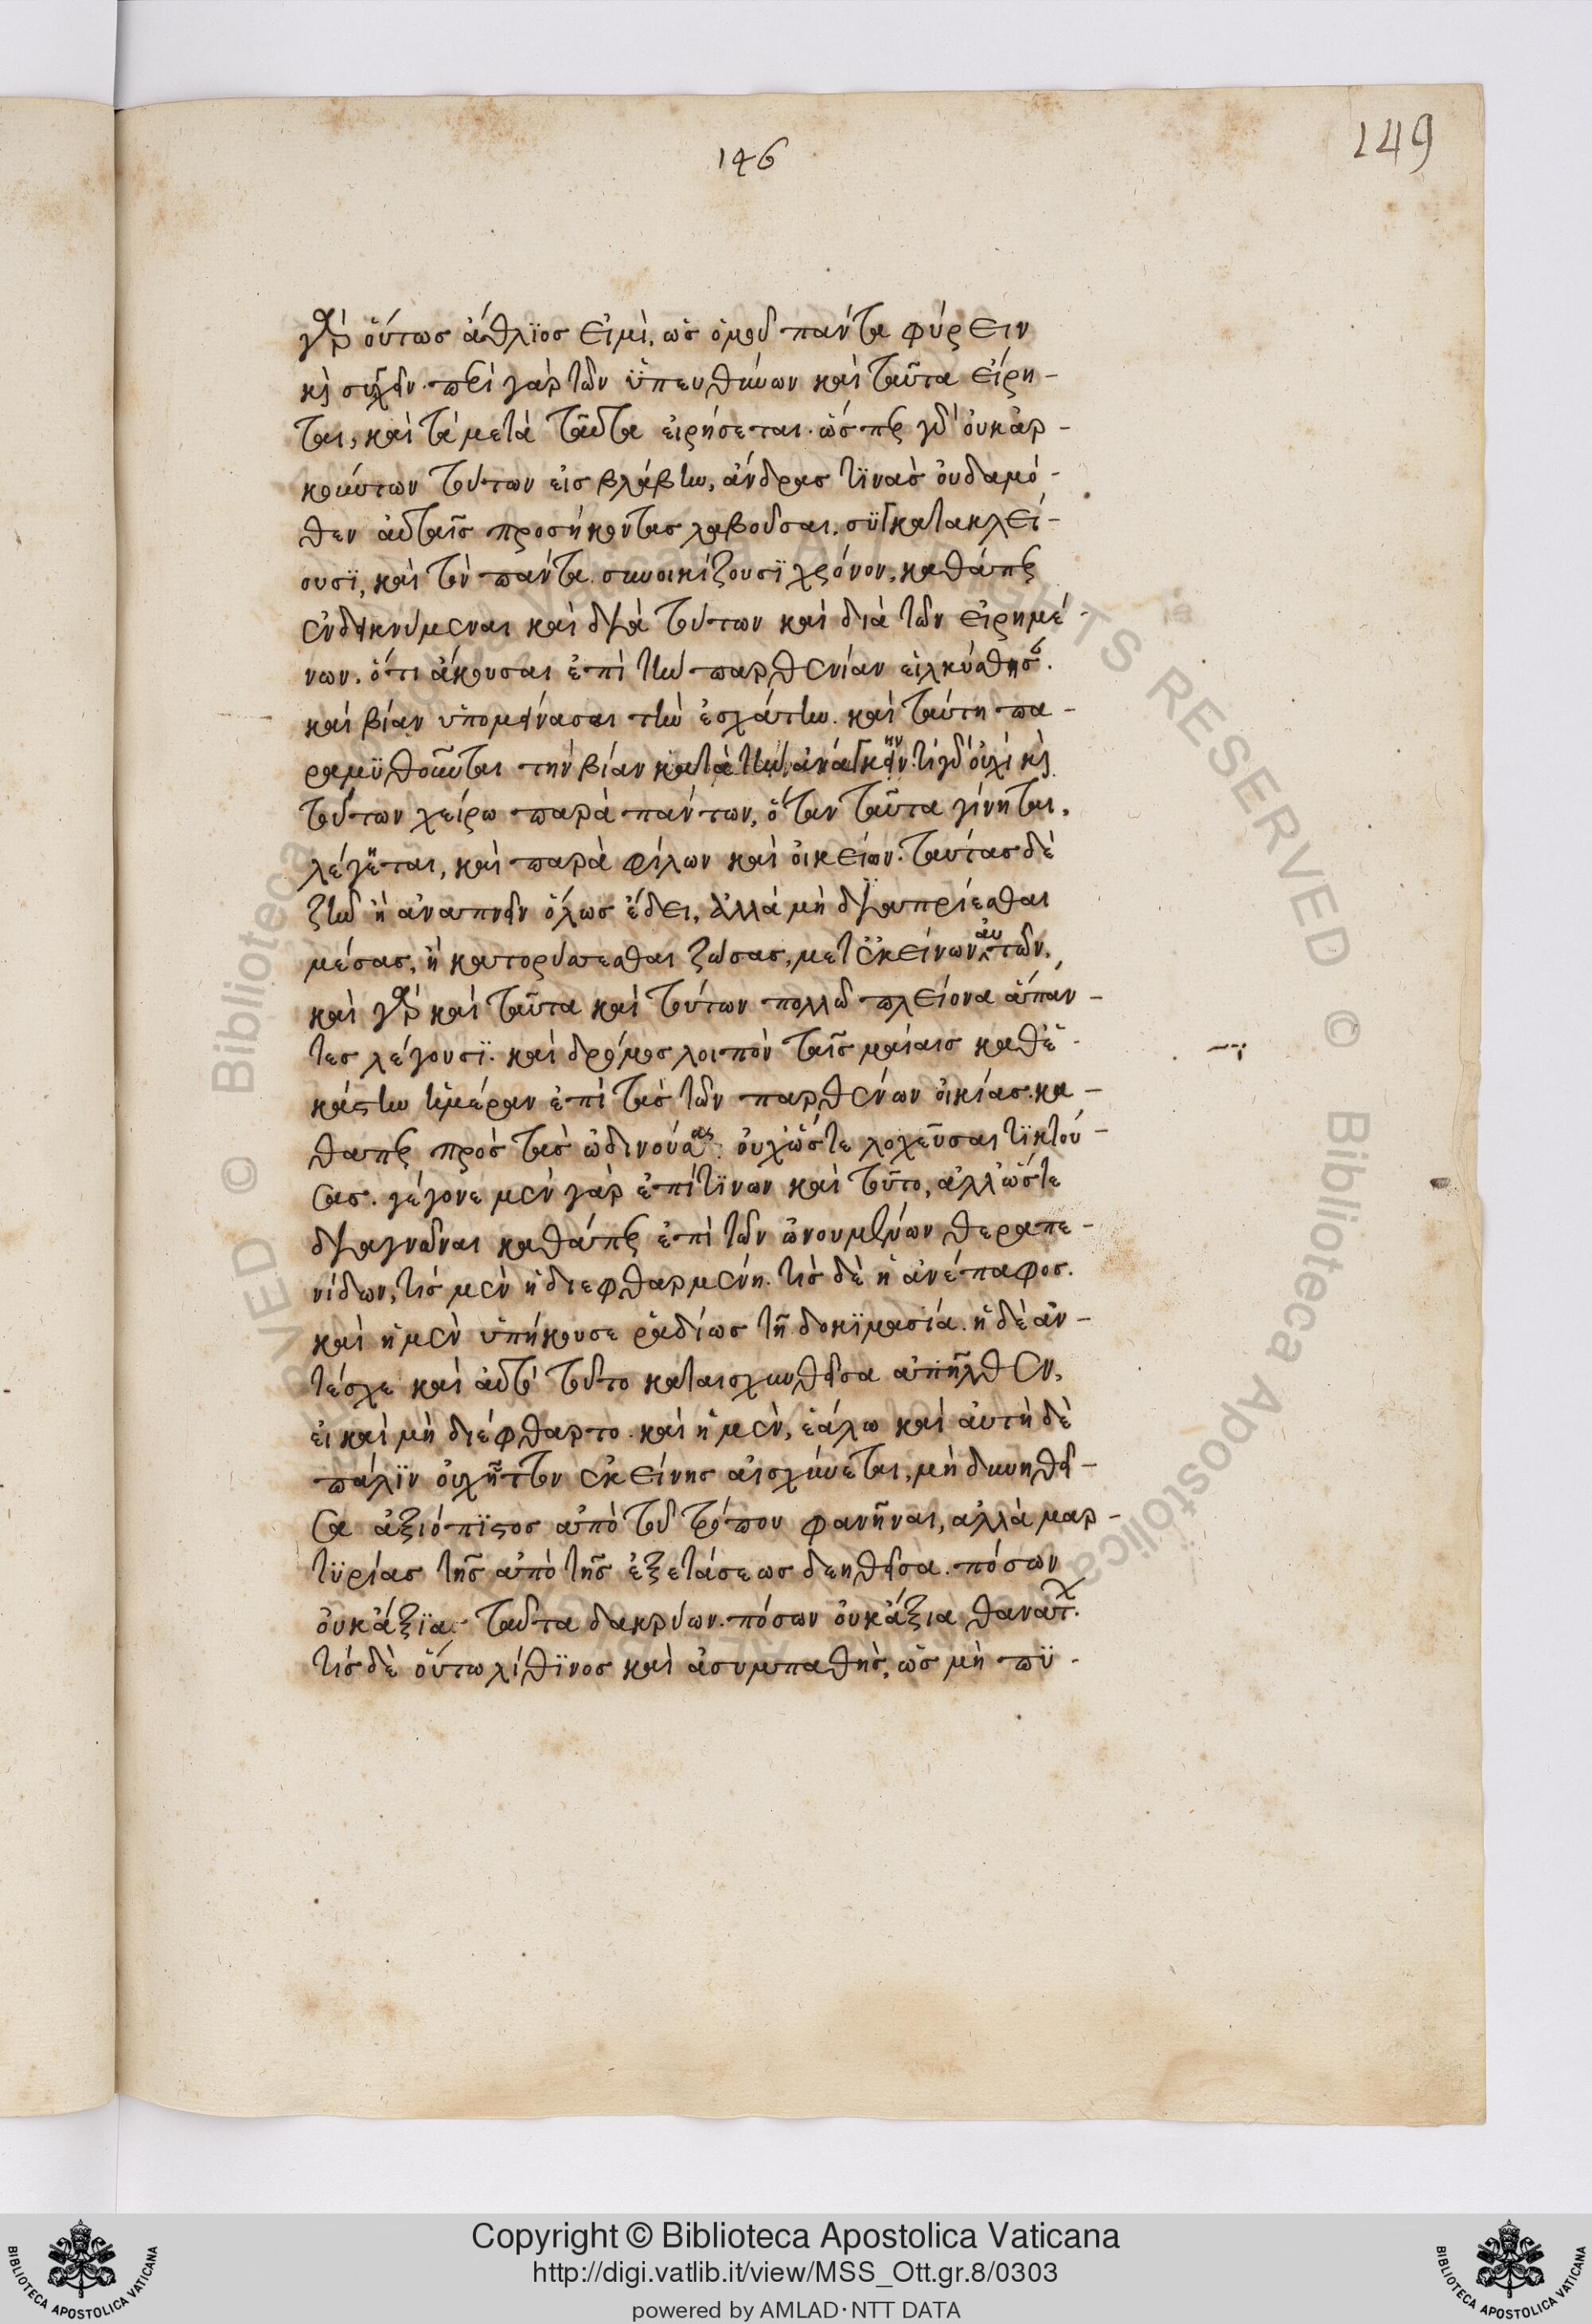 146
149
γὰρ οὕτως ἄθλϊος εἰμὶ, ὡς ὁμοῦ πάντα φύρειν
καὶ συγχεῖν. περὶ γὰρ τῶν ϋπευθύνων καὶ ταῦτα εἴρη-
ται, καὶ τὰ μετὰ ταῦτα εἰρήσεται. ὥσπερ γὰρ οὐκ ἀρ-
κούντων τούτων εἰς βλάβην, ἄνδρας τϊνὰς οὐδαμό-
θεν αὐταῖς προσήκοντας λαβοῦσαι, συγκατακλεί-
ουσϊ, καὶ τὸν πάντα συνοικίζουσϊ χρόνον, καθάπερ
ἐνδεικνύμεναι καὶ διὰ τούτων καὶ διὰ τῶν εἰρημέ-
νων, ὅτι ἄκουσαι ἐπὶ τὴν παρθενίαν εἱλκύσθησαν.
καὶ βίαν ὑπομείνασαι τὴν ἐσχάτην. καὶ ταύτη πα-
ραμϋθοῦνται τὴν βίαν κατὰ τὴν ἀνάγκην. τί γὰρ οὐχὶ καὶ
τούτων χείρω παρὰ πάντων, ὅταν ταῦτα γίνηται,
λέγεται, καὶ παρὰ φίλων καὶ οἰκείων. ταύτας δὲ
ζῆν ἢ ἀναπνεῖν ὅλως ἔδει, ἀλλὰ μὴ διαπρίεσθαι
μέσας, ἢ κατορύττεσθαι ζώσας, μετ' ἐκείνων αὐτῶν,
καὶ γὰρ καὶ ταῦτα καὶ τούτων πολλῶ πλείονα ἅπαν-
τες λέγουσϊ. καὶ δρόμος λοιπὸν ταῖς μαίαις καθ' ἑ-
κάστην ἡμέραν ἐπὶ τὰς τῶν παρθένων οἰκίας, κα-
θάπερ πρὸς τὰς ὠδινούσας. οὐχ ὥστε λοχεῦσαι τϊκτού-
σας. γέγονε μὲν γὰρ ἐπί τϊνων καὶ τοῦτο, ἀλλ' ὥστε
διαγνῶναι καθάπερ ἐπὶ τῶν ὠνουμένων θεραπε-
νίδων, τίς μὲν ἡ διεφθαρμένη. τίς δὲ ἡ ἀνέπαφος.
καὶ ἡ μὲν ὑπήκουσε ῥαδίως τῇ δοκϊμασία. ἡ δὲ ἀν-
τέσχε καὶ αὐτὸ τοῦτο καταισχυνθεῖσα ἀπῆλθεν,
εἰ καὶ μὴ διέφθαρτο. καὶ ἡ μὲν, ἑάλω καὶ αὐτὴ δὲ
πάλϊν οὐχ ἧττον ἐκείνης αἰσχύνεται, μὴ δυνηθεῖ-
σα ἀξιόπϊστος ἀπὸ τοῦ τρόπου φανῆναι, ἀλλὰ μαρ-
τϋρίας τῆς ἀπὸ τῆς ἐξετάσεως δεηθεῖσα. πόσων
οὐκ ἄξϊα ταῦτα δακρύων. πόσων οὐκ ἄξια θανάτων.
τίς δὲ οὕτω λίθϊνος καὶ ἀσυμπαθὴς, ὡς μὴ πϋ-
Copyright © Biblioteca Apostolica Vaticana
http://digi.vatlib.it/view/MSS_Ott.gr.8/0303
powered by AMLAD·NTT DATA